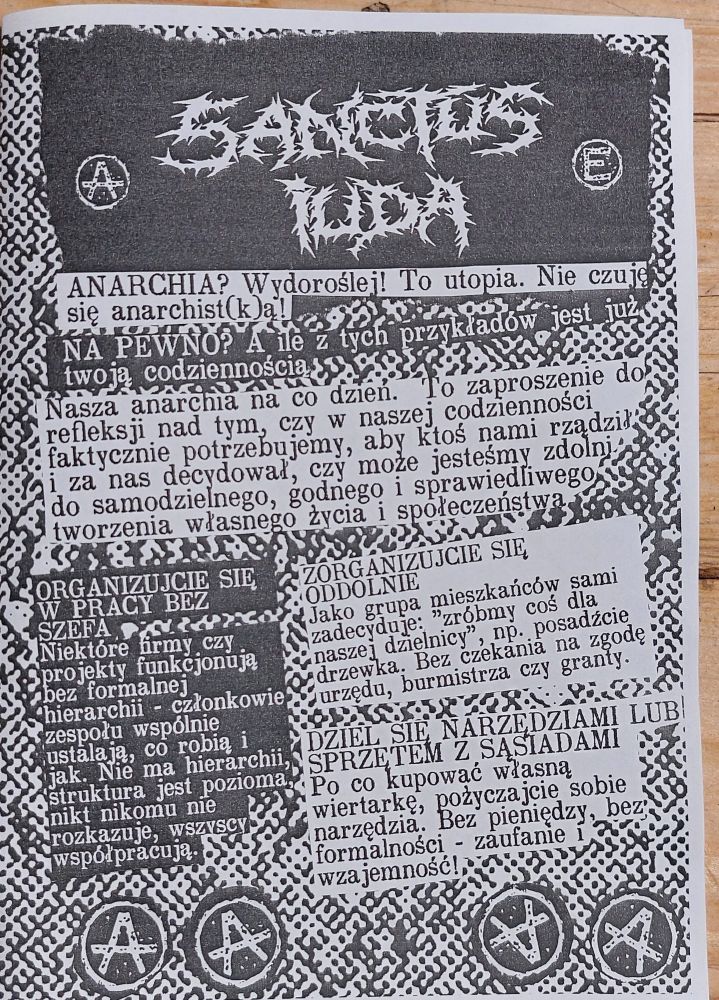 SANCTUS
IUDA
A
E
ANARCHIA? Wydoroślej! To utopia. Nie czuję
się anarchist(k)ą!
NA PEWNO? A ile z tych przykładów jest już
twoją codziennością
Nasza anarchia na co dzień. To zaproszenie do
refleksji nad tym, czy w naszej codzienności
faktycznie potrzebujemy, aby ktoś nami rządził
i za nas decydował, czy może jesteśmy zdolni
do samodzielnego, godnego i sprawiedliwego
tworzenia własnego życia i społeczeństwa
ORGANIZUJCIE SIĘ
W PRACY BEZ
SZEFA
Niektóre firmy czy
projekty funkcjonują
bez formalnej
hierarchii - członkowie
zespołu wspólnie
ustalają, co robią i
jak. Nie ma hierarchii,
struktura jest pozioma,
nikt nikomu nie
rozkazuje, wszyscy
współpracują.
ZORGANIZUJCIE SIĘ
ODDOLNIE
Jako grupa mieszkańców sami
zadecyduje: "zróbmy coś dla
naszej dzielnicy", np. posadźcie
drzewka. Bez czekania na zgodę
urzędu, burmistrza czy granty.
DZIEL SIĘ NARZĘDZIAMI LUB
SPRZĘTEM Z SĄSIADAMI
Po co kupować własną
wiertarkę, pożyczajcie sobie
narzędzia. Bez pieniędzy, bez
formalności - zaufanie i
wzajemność!
A A A A